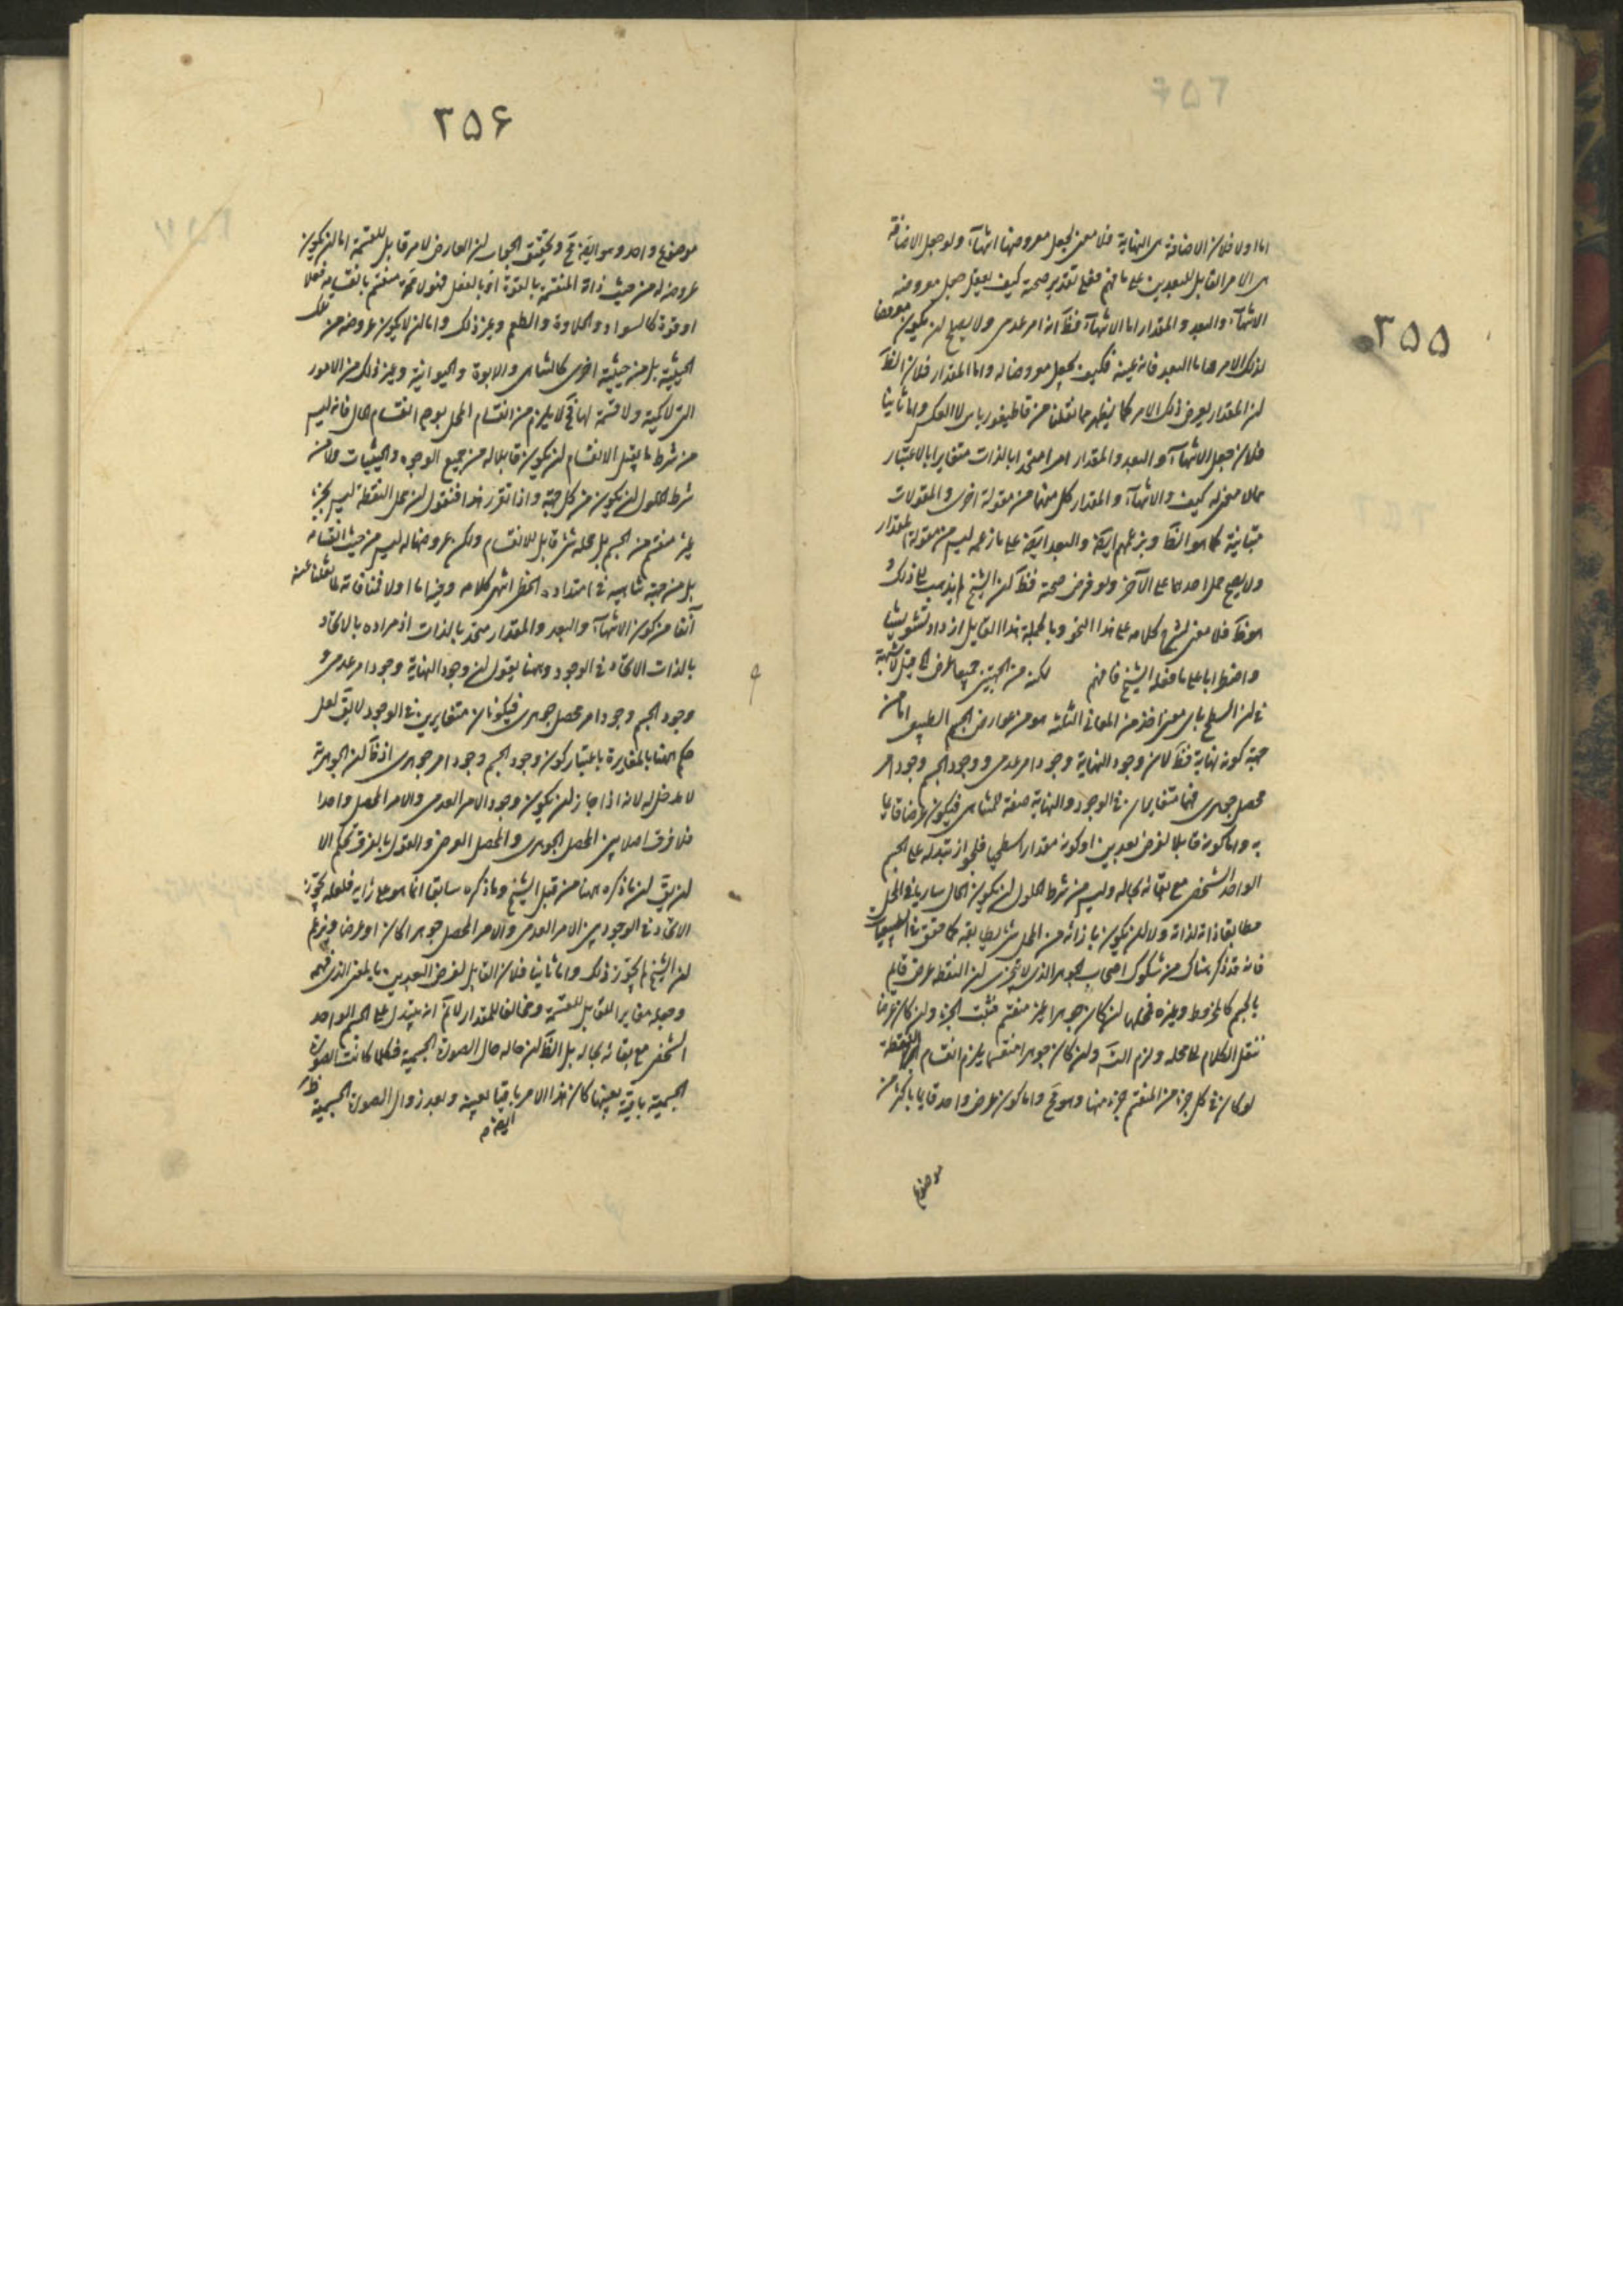 ٢٥٥
اما اولا فلان الاضافة هى النهاية فلا معنى لجعل معروضها انتهاء ولو جعل الاضافة
هى الامر القابل للبعدين على ما فهم فعلى تقدير صحته كيف يعقل جعل معروضه
الانتهاء والبعد والمقدار اما الانتهاء فظ انه امر عدمى ولا يصلح لان يكون معروضا
لذلك الامر واما البعد فانه عينه فكيف يجعل معروضا له واما المقدار فلان الظ
ان المقدار يعرض ذلك الامر كما يظهر مما نقلنا من قاطيغورياس لا العكس واما ثانيا
فلان جعل الانتهاء والبعد والمقدار امرا متحدا بالذات متغايرا بالاعتبار
مما لا معنى له كيف والانتهاء والمقدار كل منهما من مقولة اخرى والمقولات
متباينة كما هو الظ وبزعمهم ايضا والبعد ايضا على ما زعمه ليس من مقولة المقدار
ولا يصح حمل احدهما على الآخر ولو فرض صحته فظ ان الشيخ لم يذهب الى ذلك و
هو ظ فلا معنى لشرح كلامه على هذا النحو وبالجملة هذا القايل ازداد تشويشا
واضطرابا على ما فعله الشيخ فافهم لكنه من الجهتين جميعا عرض الخ قيل لا شبهة
فى ان السطح باى معنى اخذ من المعانى الثلثة هو من عوارض الجسم الطبيعى اما من
جهة كونه نهاية فظ لان وجود النهاية وجود امر عدمى ووجود الجسم وجود امر
محصل جوهرى فهما متغايران فى الوجود والنهاية صفة للمتناهى فيكون عرضا قائما
به واما كونه قابلا لفرض بعدين او كونه مقدارا سطحيا فلجواز تبدله على الجسم
الواحد الشخصى مع بقائه بحاله وليس من شرط الحلول ان يكون الحال ساريا فى المحل
مطابقا ذاته لذاته ولا ان يكون بازائه من المحل شئ يطابقه كما حقق فى الطبيعيات
فانه قد ذكر هناك من شكوك اصحاب الجوهر الذى لا يتجزى ان النقطة عرض قايم
بالجسم كالمخروط وغيره فمحلها ان كان جوهرا غير منقسم فثبت الجزء وان كان عرضا
ننقل الكلام الى محله ولزم التس وان كان جوهرا منقسما يلزم انقسام النقطة
لو كان فى كل جزء من المنقسم جزء منها وهو مح واما كون عرض واحد قايما باكثر من
موضوع
٢٥۶
موضوع واحد وهو ايضا مح وتحقيق الجواب ان العارض لامر قابل للقسمة اما ان يكون
عروضه له من حيث ذاته المنقسمة بالقوة او بالفعل فهو لا محة منقسم بانقسامه فعلا
او قوة كالسواد والحلاوة والطعم وغير ذلك واما ان لا يكون عروضه من تلك
الحيثية بل من حيثية اخرى كالتناهى والابوة والحيوانية وغير ذلك من الامور
التى لا كمية ولا قسمة لها فح لا يلزم من انقسام المحل بوجه انقسام الحال فانه ليس
من شرط ما يقبل الانقسام ان يكون قابلا له من جميع الوجوه والحيثيات ولا من
شرط الحلول ان يكون من كل جهة واذا تقرر هذا فنقول ان محل النقطة ليس بجزء
غير منقسم من الجسم بل محله شئ قابل للانقسام ولكن عروضها له ليس من حيث انقسامه
بل من جهة تناهيه فى امتداده الخطى انتهى كلامه وفيه اما اولا فمنافاته لما نقلنا عنه
آنفا من كون الانتهاء والبعد والمقدار متحدة بالذات اذ مراده بالاتحاد
بالذات الاتحاد فى الوجود وههنا يقول ان وجود النهاية وجود امر عدمى و
وجود الجسم وجود امر محصل جوهرى فيكونان متغايرين فى الوجود لا يق لعل
حكم ههنا بالمغايرة باعتبار كون وجود الجسم وجود امر جوهرى اذ ظ ان الجوهرية
لا مدخل له لانه اذا جاز ان يكون وجود الامر العدمى والامر المحصل واحدا
فلا فرق اصلا بين المحصل الجوهرى والمحصل العرضى والقول بالفرق تحكم الا
ان يق ان ما ذكره ههنا من قبل الشيخ وما ذكره سابقا انما هو على رايه فلعله يجوز
الاتحاد فى الوجود بين الامر العدمى والامر المحصل جوهرا كان او عرضا ويزعم
ان الشيخ لم يجوز ذلك واما ثانيا فلان القابل لفرض البعدين بالمعنى الذى فهمه
وجعله مغايرا للقابل للقسمة ومخالفا للمقدار لا نم انه يتبدل على الجسم الواحد
الشخصى مع بقائه بحاله بل الظ ان حاله حال الصورة الجسمية فكلما كانت الصورة
الجسمية باقية بعينها كان هذا الامر باقيا بعينه وبعد زوال الصورة الجسمية